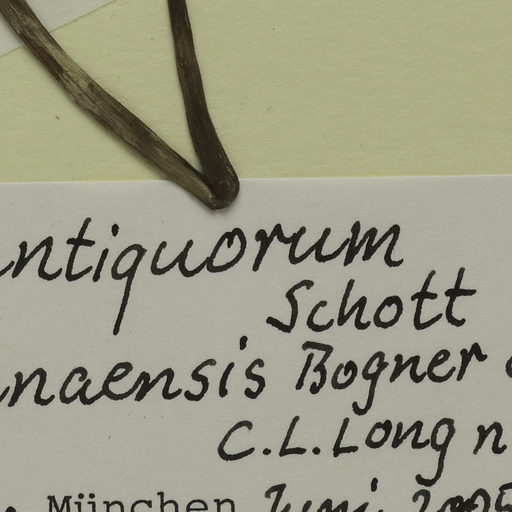 ntiquorum
Schott
naensis Bogner
C.L. Long n
München Juni 2005